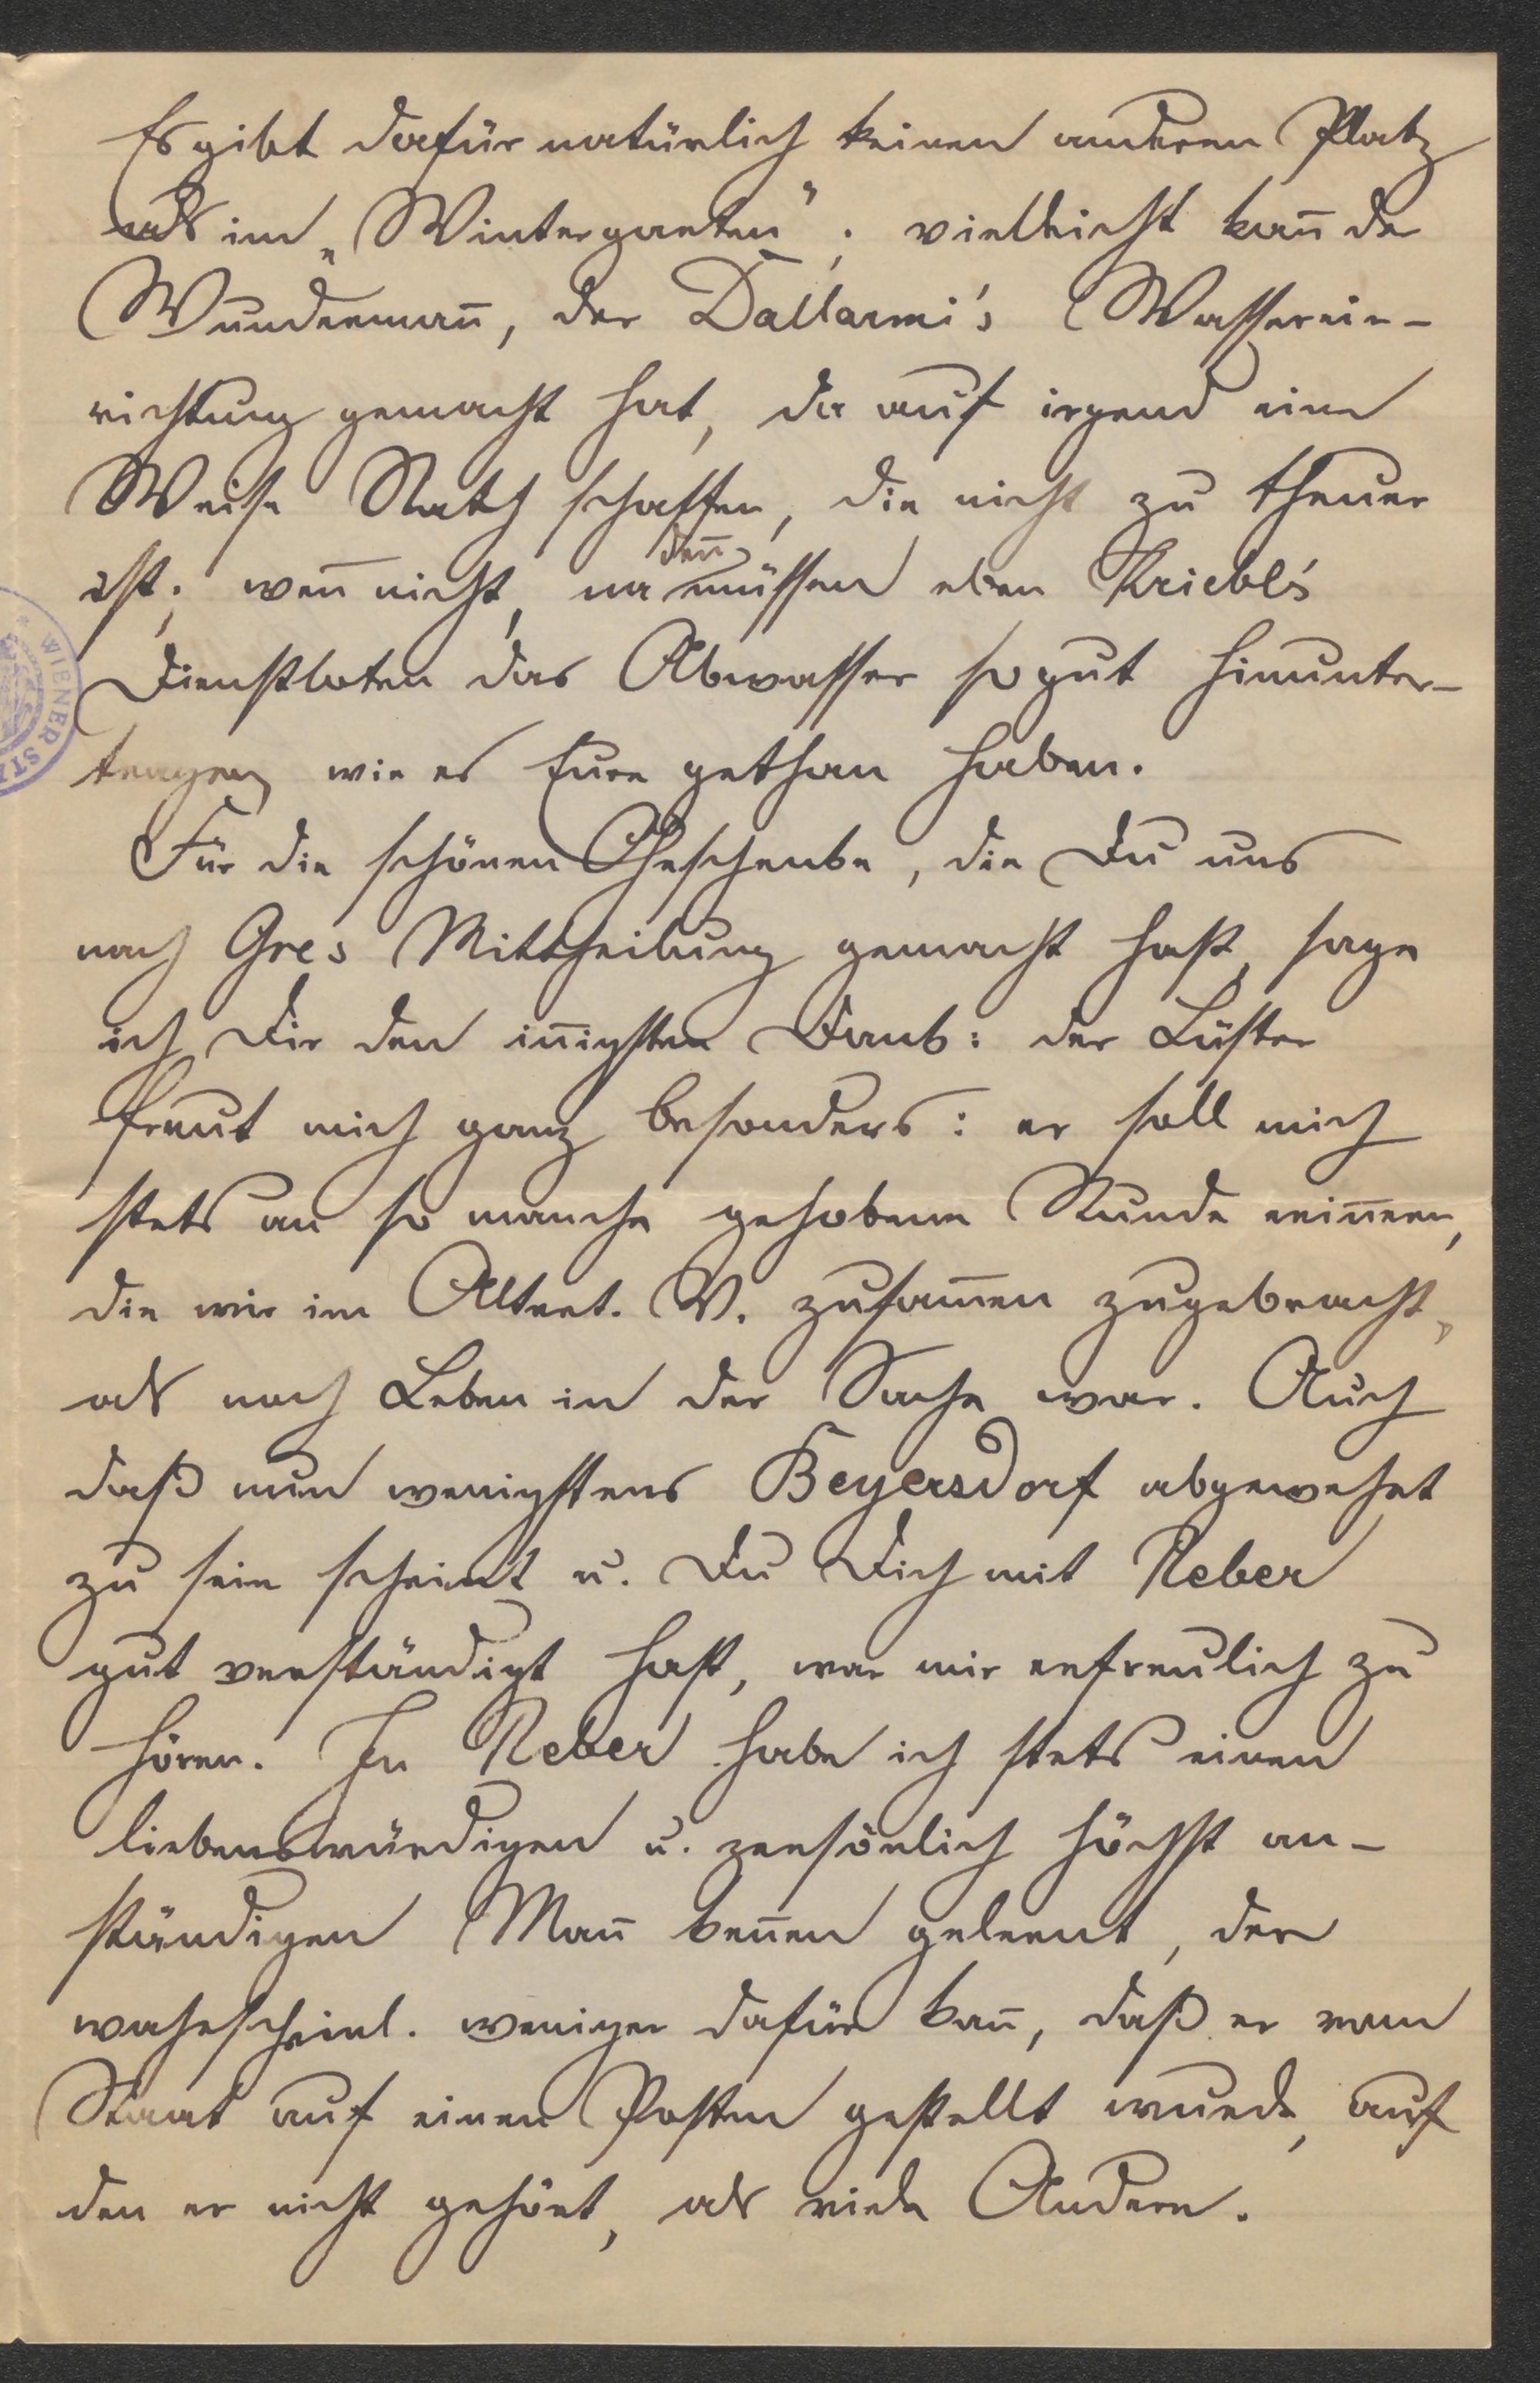 Es gibt dafür natürlich keinen anderen Platz
als im „Wintergarten“; vielleicht kan̄ der
Wunderman̄, der Dallarmi's Wasserein-
richtung gemacht hat, da auf irgend eine
Weise Rath schaffen, die nicht zu theuer
ist; wen̄ nicht, na den̄ müssen eben Kriebl's
Dienstboten das Abwasser so gut hinunter-
tragen wie es Eure gethan haben.
Für die schönen Geschenke, die Du uns
nach Gres Mittheilung gemacht hast, sage
ich Dir den in̄igsten Dank: der Lüster
freut mich ganz besonders: er soll mich
stets an so manche gehobene Stunde erin̄ern,
die wir im Altert. V. zusam̄en zugebracht,
als noch Leben in der Sache war. Auch
daß nun wenigstens Beyersdorf abgewehrt
zu sein scheint u. Du Dich mit Reber
gut verständigt hast, war mir erfreulich zu
hören. In Reber habe ich stets einen
liebenswürdigen u. persönlich höchst an-
ständigen Man̄ ken̄en gelernt, der
wahrscheinl. weniger dafür kan̄, daß er vom
Staat auf einen Posten gestellt wurde, auf
den er nicht gehört, als viele Andere.
WIENER STA